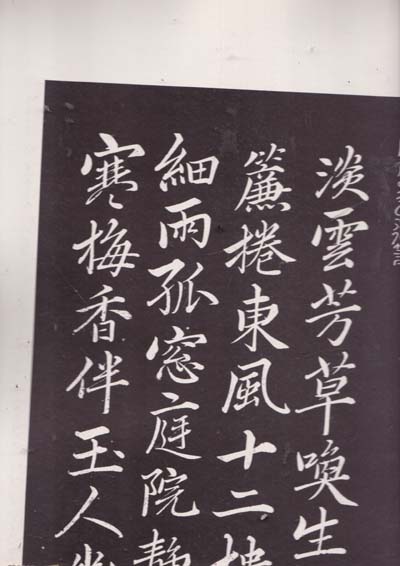 淡雲芳草喚生
簾捲東風十二
細雨孤窓庭院
寒梅香伴玉人